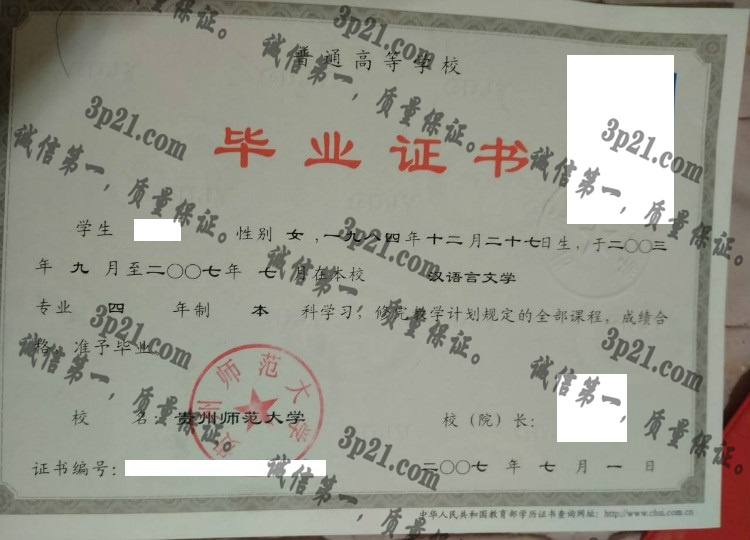 普通高等学校
毕业证书
学生 性别 女 ,一九八四年十二月二十七日生,于二〇〇三
年 九 月至二〇〇七年 七 月在本校 汉语言文学
专业 四 年制 本 科学习,修完教学计划规定的全部课程,成绩合
格,准予毕业。
校 名:贵州师范大学
校(院)长:
证书编号:
二〇〇七 年 七 月 一 日
中华人民共和国教育部学历证书查询网址:http://www.chsi.com.cn
贵州师范大学
3p21.com
诚信第一,质量保证。
3p21.com
诚信第一,质量保证。
3p21.com
诚信第一,质量保证。
3p21.com
诚信第一,质量保证。
3p21.com
诚信第一,质量保证。
3p21.com
诚信第一,质量保证。
3p21.com
诚信第一,质量保证。
诚信第一,质量保证。